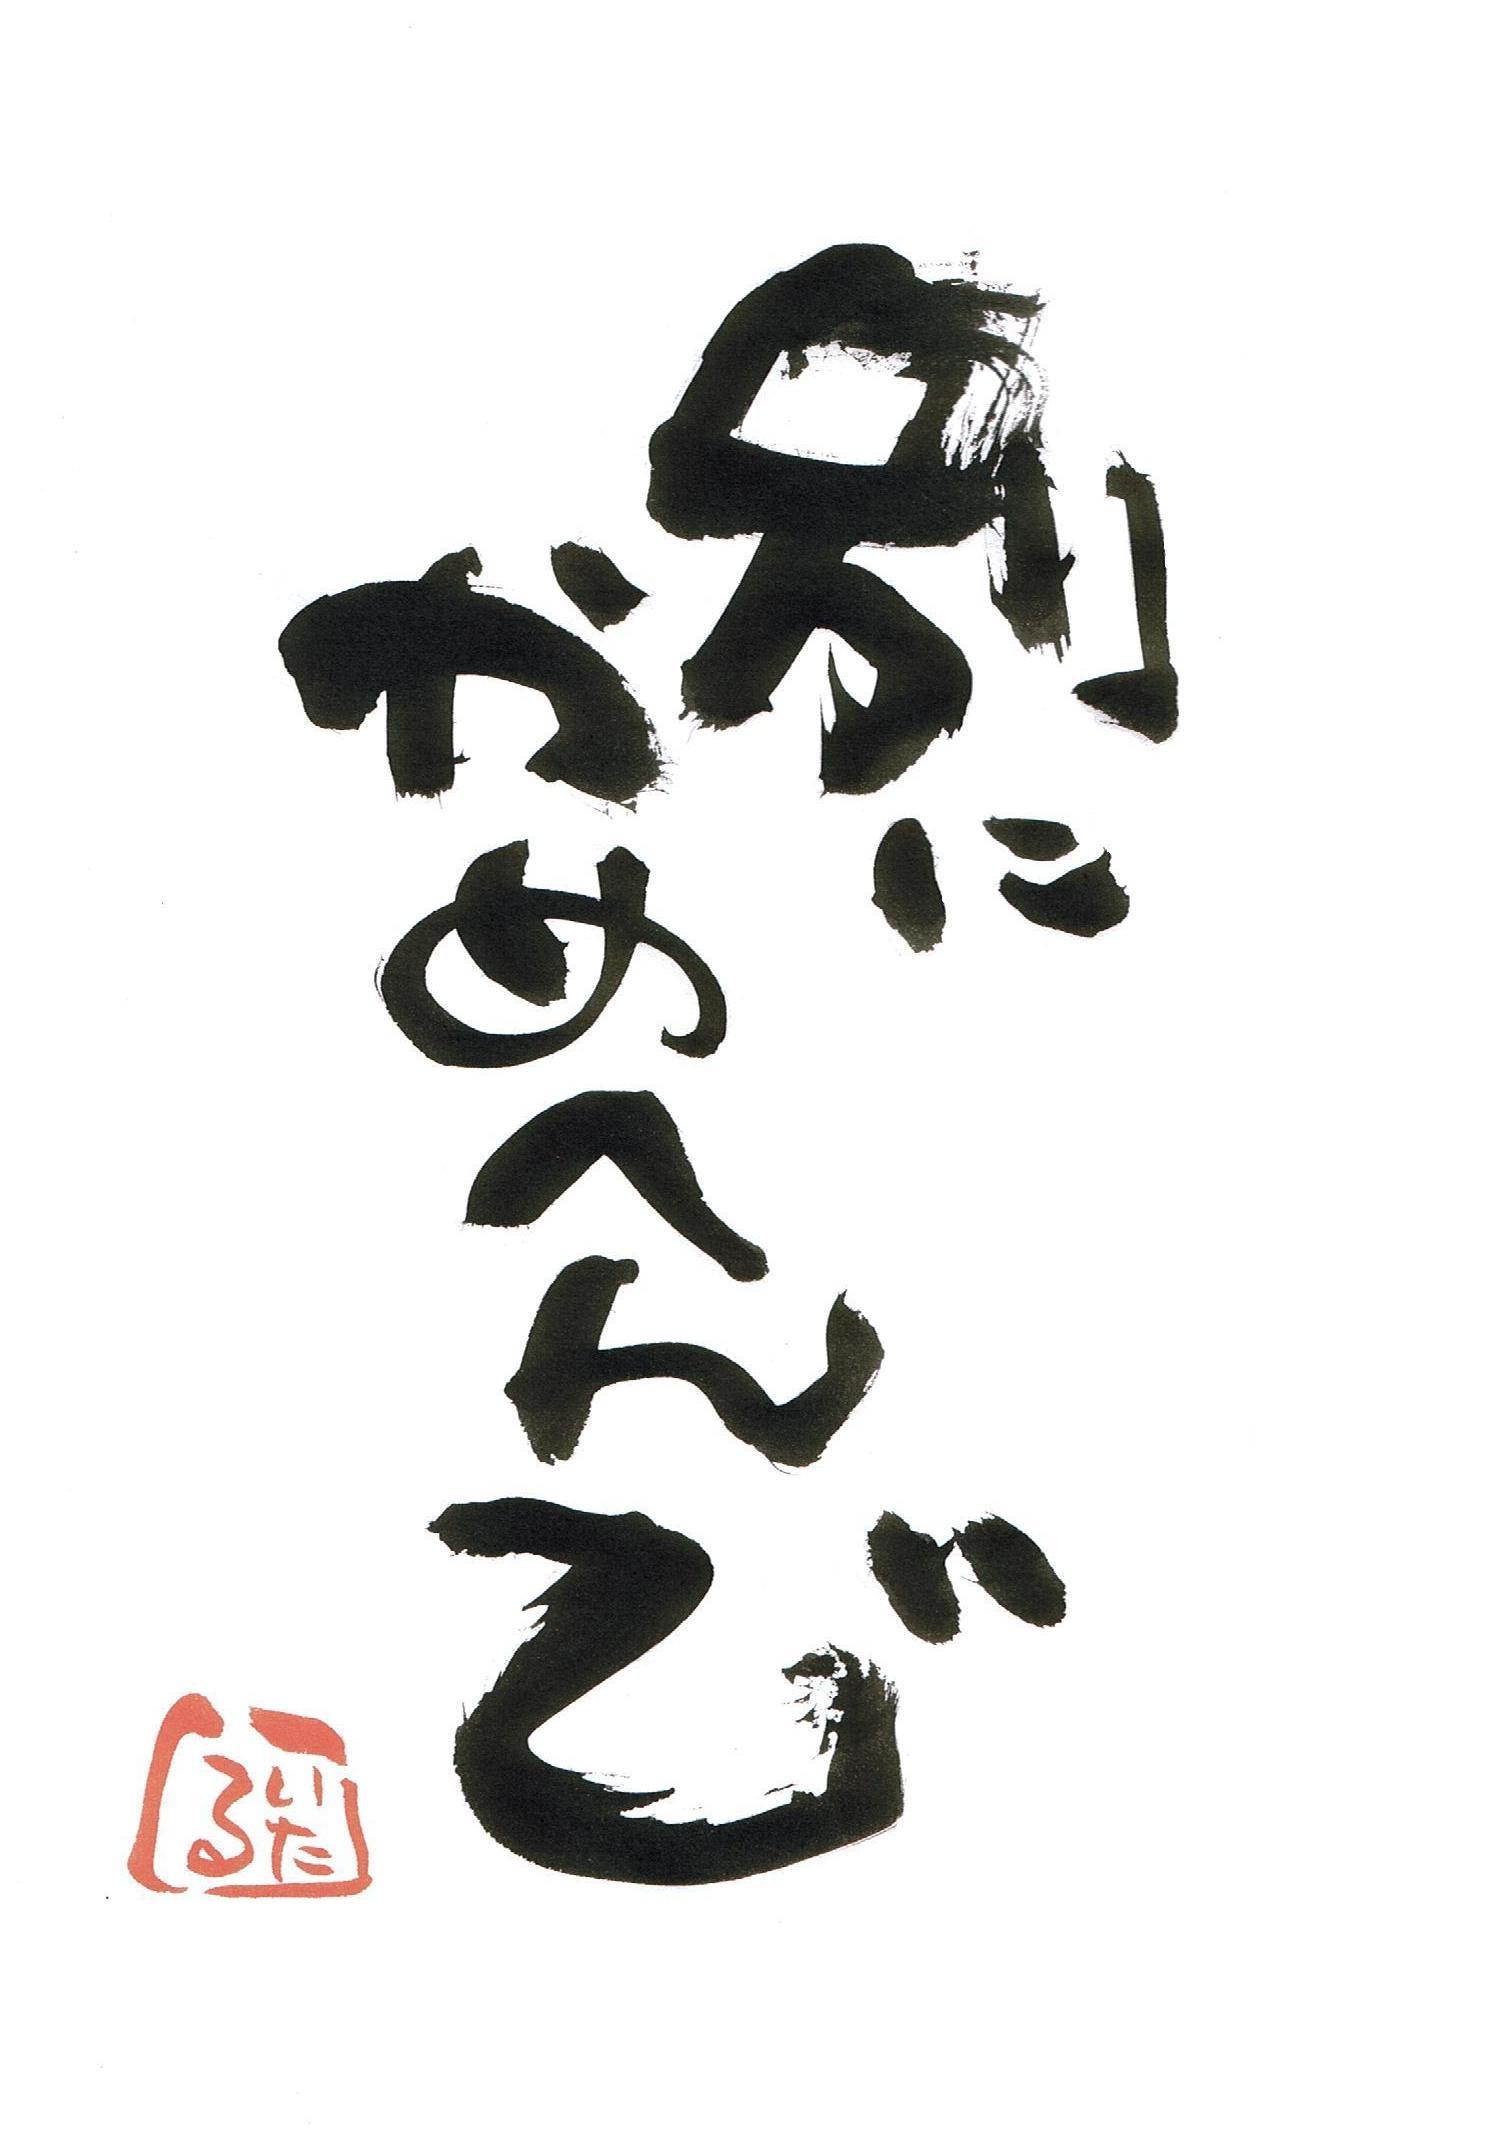 別に
かめへんで
いた
る